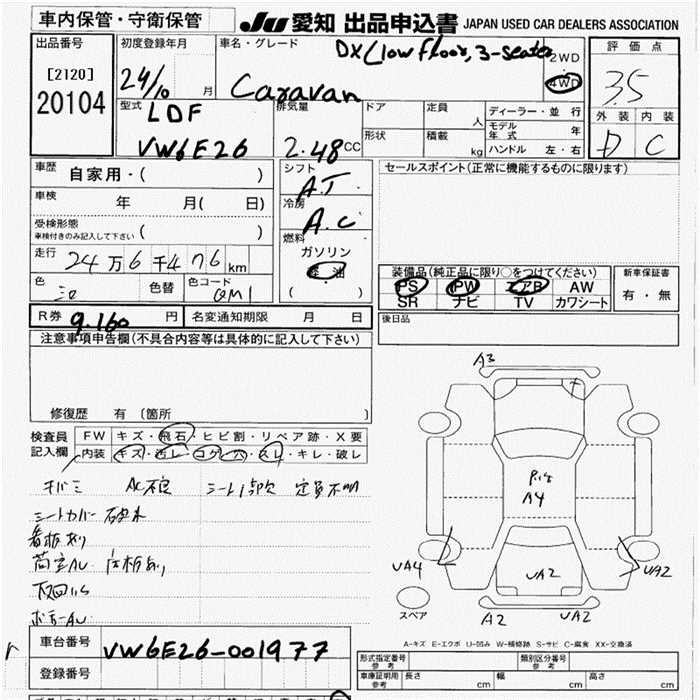 車内保管・守衛保管 JU 愛知 出品申込書 JAPAN USED CAR DEALERS ASSOCIATION
出品番号
[2120]
20104
初度登録年月
24/10 月
車名・グレード
DX(low floor, 3-seater
Caravan
2WD
4WD
評価点
3.5
外装 内装
D C
型式
LDF
VW6E26
排気量
2.48 CC
ドア 定員 人
形状 積載 kg
ディーラー・並行
モデル年式 年
ハンドル 左・右
車歴 自家用・( )
車検 年 月( 日)
受検形態
車検付きのみ記入して下さい ( )
走行 24万6千476km
色 色替 色コード
QM1
シフト
A.T.
冷房
A.C
燃料
ガソリン
軽油
( )
セールスポイント(正常に機能するものに限ります)
装備品(純正品に限り○をつけてください)
PS PW エアB AW
SR ナビ TV カワシート
新車保証書
有・無
R券 9.160 円 名変通知期限 月 日
後日品
注意事項申告欄(不具合内容等は具体的に記入して下さい)
修復歴 有 〔箇所 〕
検査員記入欄
FW キズ・飛石・ヒビ割・リペア跡・X要
内装 キズ・汚レ・コゲ・穴・スレ・キレ・破レ
キバミ AC不良 シート1部欠 定員不明
シートカバー破れ
看板あり
荷室AU 床板あり
下回りS
ボデーAU
A3
A4
UA4
UA2
UA2
A2 UA2
スペア
A-キズ E-エクボ U-凹み W-補修跡 S-サビ C-腐食 XX-交換済
車台番号 VW6E26-001977
登録番号
形式指定番号 参考 類別区分番号 参考
車庫証明用 参考 長さ cm 幅 cm 高さ cm